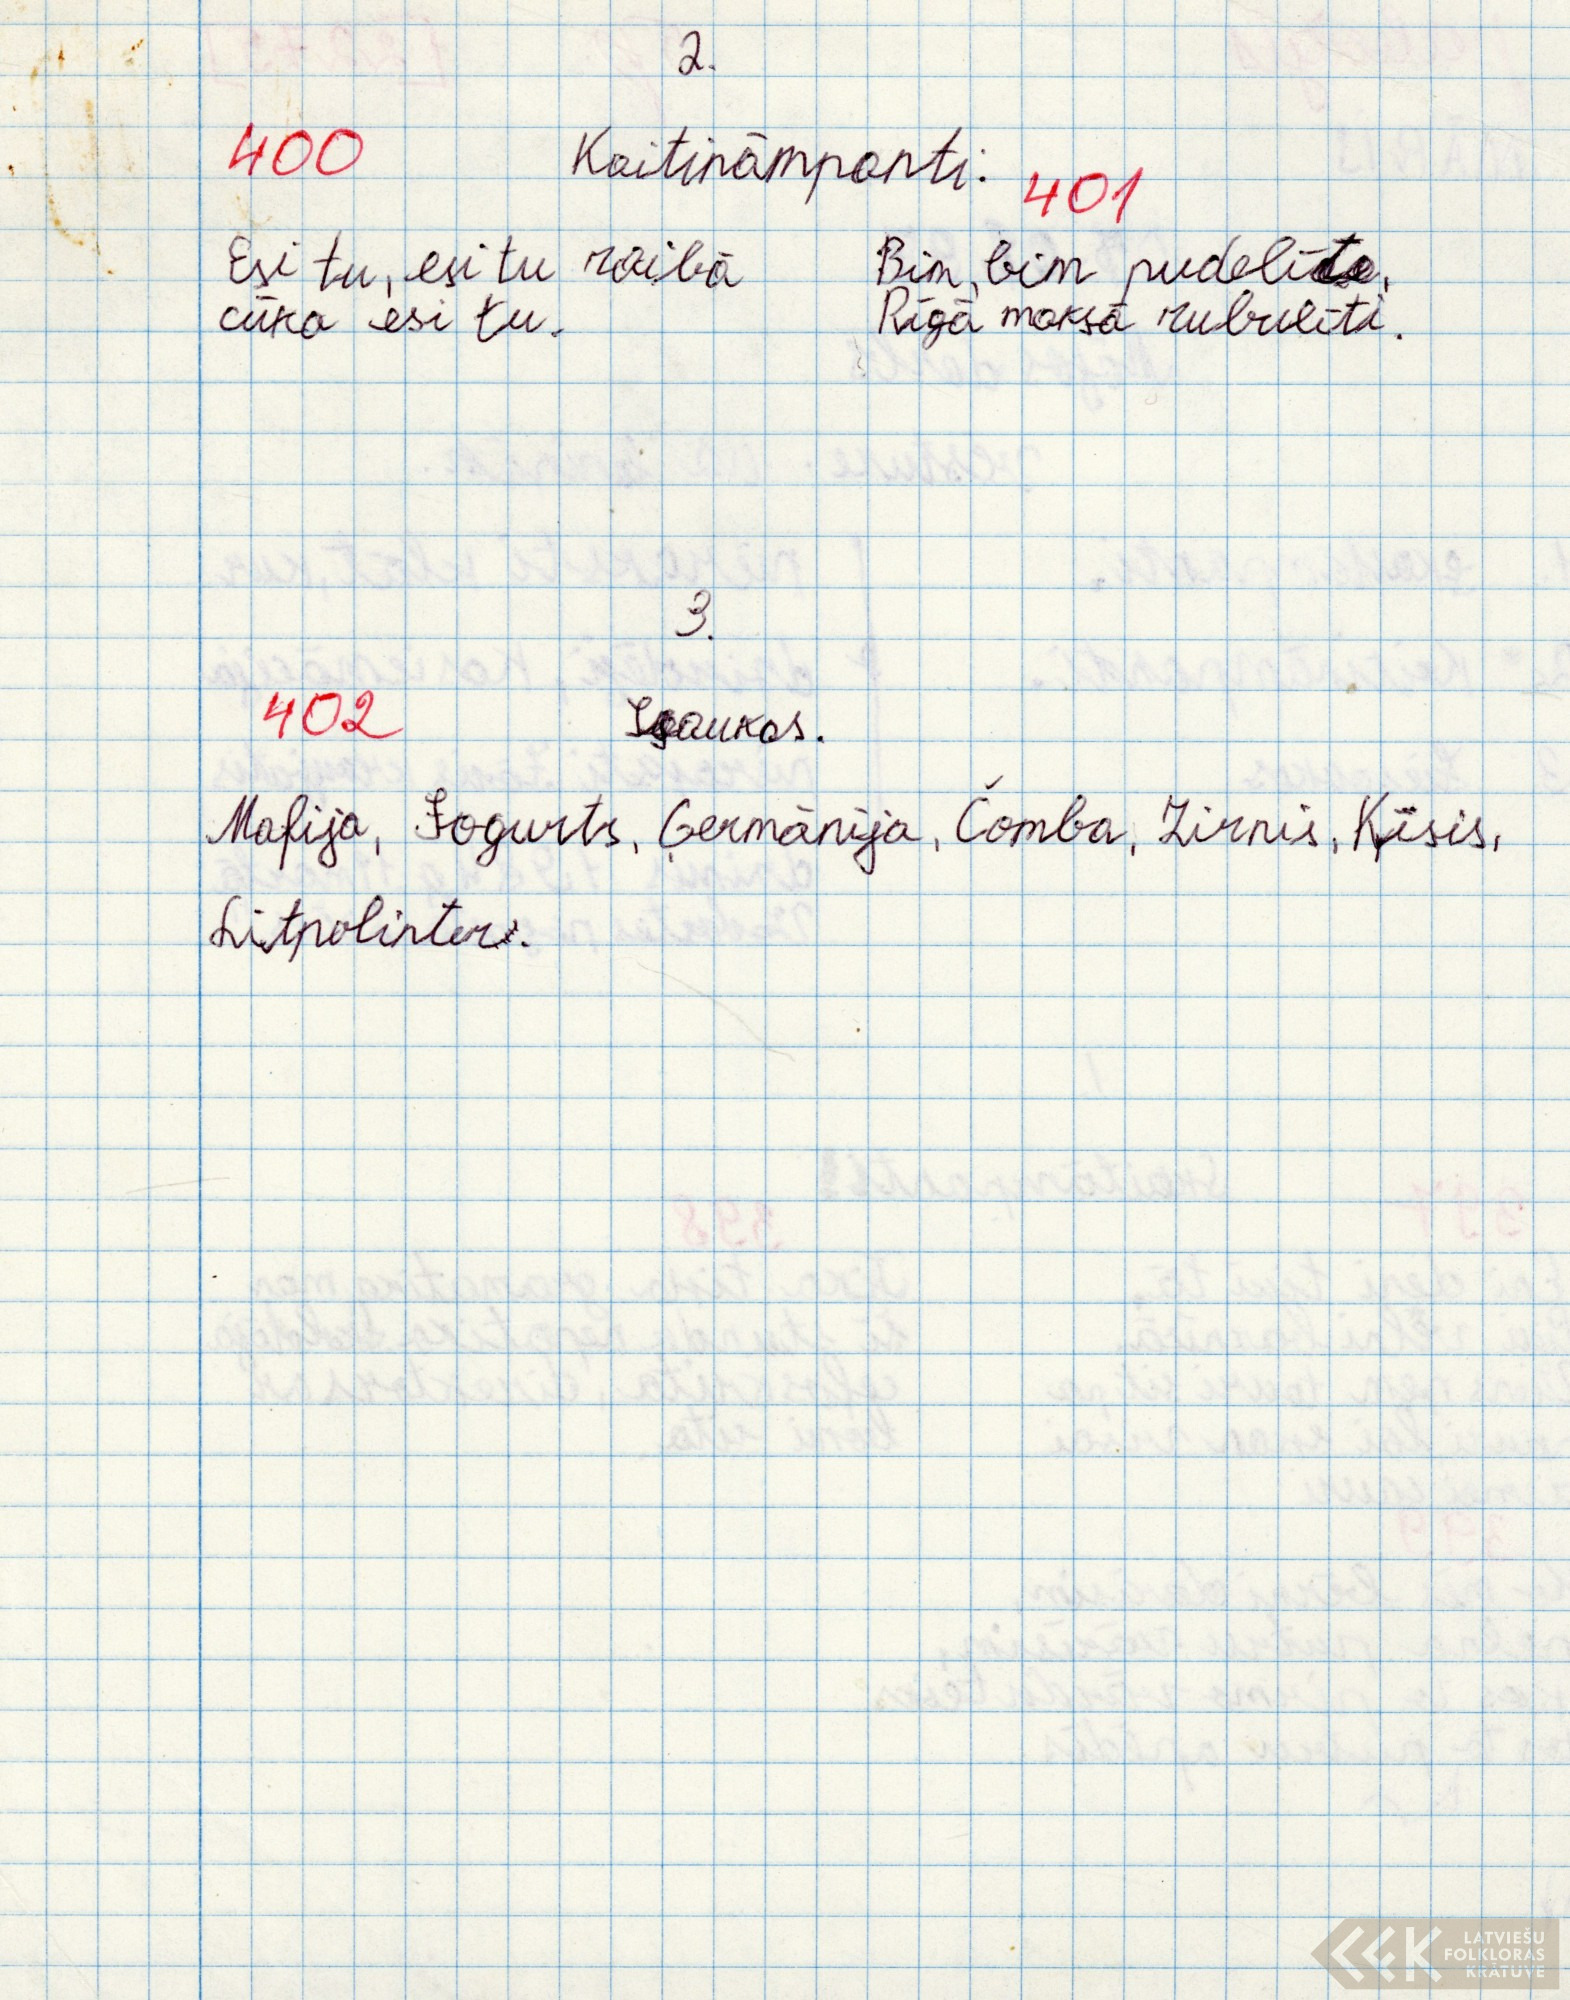 2.
400
Kaitināmpanti:
401
Esi tu, esi tu raibā
cūka esi tu.
Bim, bim pudelīte,
Rīgā maksā rubulīti.
3.
402
Iesaukas.
Mafija, Jogurts, Ģermānija, Čomba, Zirnis, Ķīsis,
Litpolinter.
LATVIEŠU
FOLKLORAS
KRĀTUVE